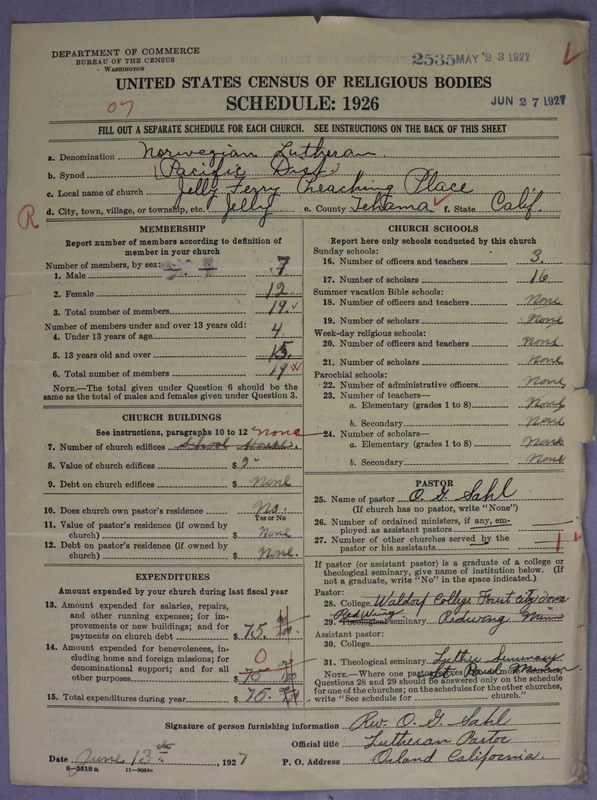 DEPARTMENT OF COMMERCE
BUREAU OF THE CENSUS
WASHINGTON
2535 MAY 23 1927
UNITED STATES CENSUS OF RELIGIOUS BODIES
SCHEDULE: 1926
07
JUN 27 1927
FILL OUT A SEPARATE SCHEDULE FOR EACH CHURCH. SEE INSTRUCTIONS ON THE BACK OF THIS SHEET
a. Denomination Norwegian Lutheran
b. Synod Pacific Dist.
c. Local name of church Jelly Ferry Preaching Place
R
d. City, town, village, or township, etc. Jelly e. County Tehama f. State Calif.
MEMBERSHIP
Report number of members according to definition of member in your church
Number of members, by sex:
1. Male 7
2. Female 12
3. Total number of members 19
Number of members under and over 13 years old:
4. Under 13 years of age 4
5. 13 years old and over 15
6. Total number of members 19
NOTE.—The total given under Question 6 should be the same as the total of males and females given under Question 3.
CHURCH BUILDINGS
See instructions, paragraphs 10 to 12 none
7. Number of church edifices School House.
8. Value of church edifices $
9. Debt on church edifices $ None
10. Does church own pastor's residence No.
Yes or No
11. Value of pastor's residence (if owned by church) $ None
12. Debt on pastor's residence (if owned by church) $ None.
EXPENDITURES
Amount expended by your church during last fiscal year
13. Amount expended for salaries, repairs, and other running expenses; for improvements or new buildings; and for payments on church debt $ 75.
14. Amount expended for benevolences, including home and foreign missions; for denominational support; and for all other purposes $ 0
15. Total expenditures during year $ 75.
CHURCH SCHOOLS
Report here only schools conducted by this church
Sunday schools:
16. Number of officers and teachers 3.
17. Number of scholars 16
Summer vacation Bible schools:
18. Number of officers and teachers None
19. Number of scholars None
Week-day religious schools:
20. Number of officers and teachers None
21. Number of scholars None
Parochial schools:
22. Number of administrative officers None
23. Number of teachers—
a. Elementary (grades 1 to 8) None
b. Secondary None
24. Number of scholars—
a. Elementary (grades 1 to 8) None
b. Secondary None
PASTOR
25. Name of pastor O. G. Sahl
(If church has no pastor, write "None")
26. Number of ordained ministers, if any, employed as assistant pastors
27. Number of other churches served by the pastor or his assistants 1
If pastor (or assistant pastor) is a graduate of a college or theological seminary, give name of institution below. (If not a graduate, write "No" in the space indicated.)
Pastor:
28. College Waldorf College Forest City Iowa
Red Wing
29. Theological seminary Redwing Minn
Assistant pastor:
30. College
31. Theological seminary Luther Seminary
St Paul
NOTE.—Where one pastor serves more than one church, Questions 28 and 29 should be answered only on the schedule for one of the churches; on the schedules for the other churches, write "See schedule for church."
Signature of person furnishing information Rev. O. G. Sahl
Official title Lutheran Pastor
Date June 13th, 1927 P. O. Address Orland California.
8-5518a 11-9554a